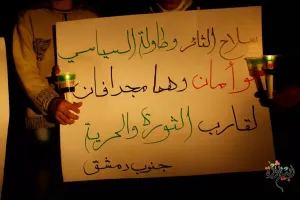 سلاح الثائر وطاولة السياسي
توأمان وهما مجدافان
لقارب الثورة والحرية
جنوب دمشق